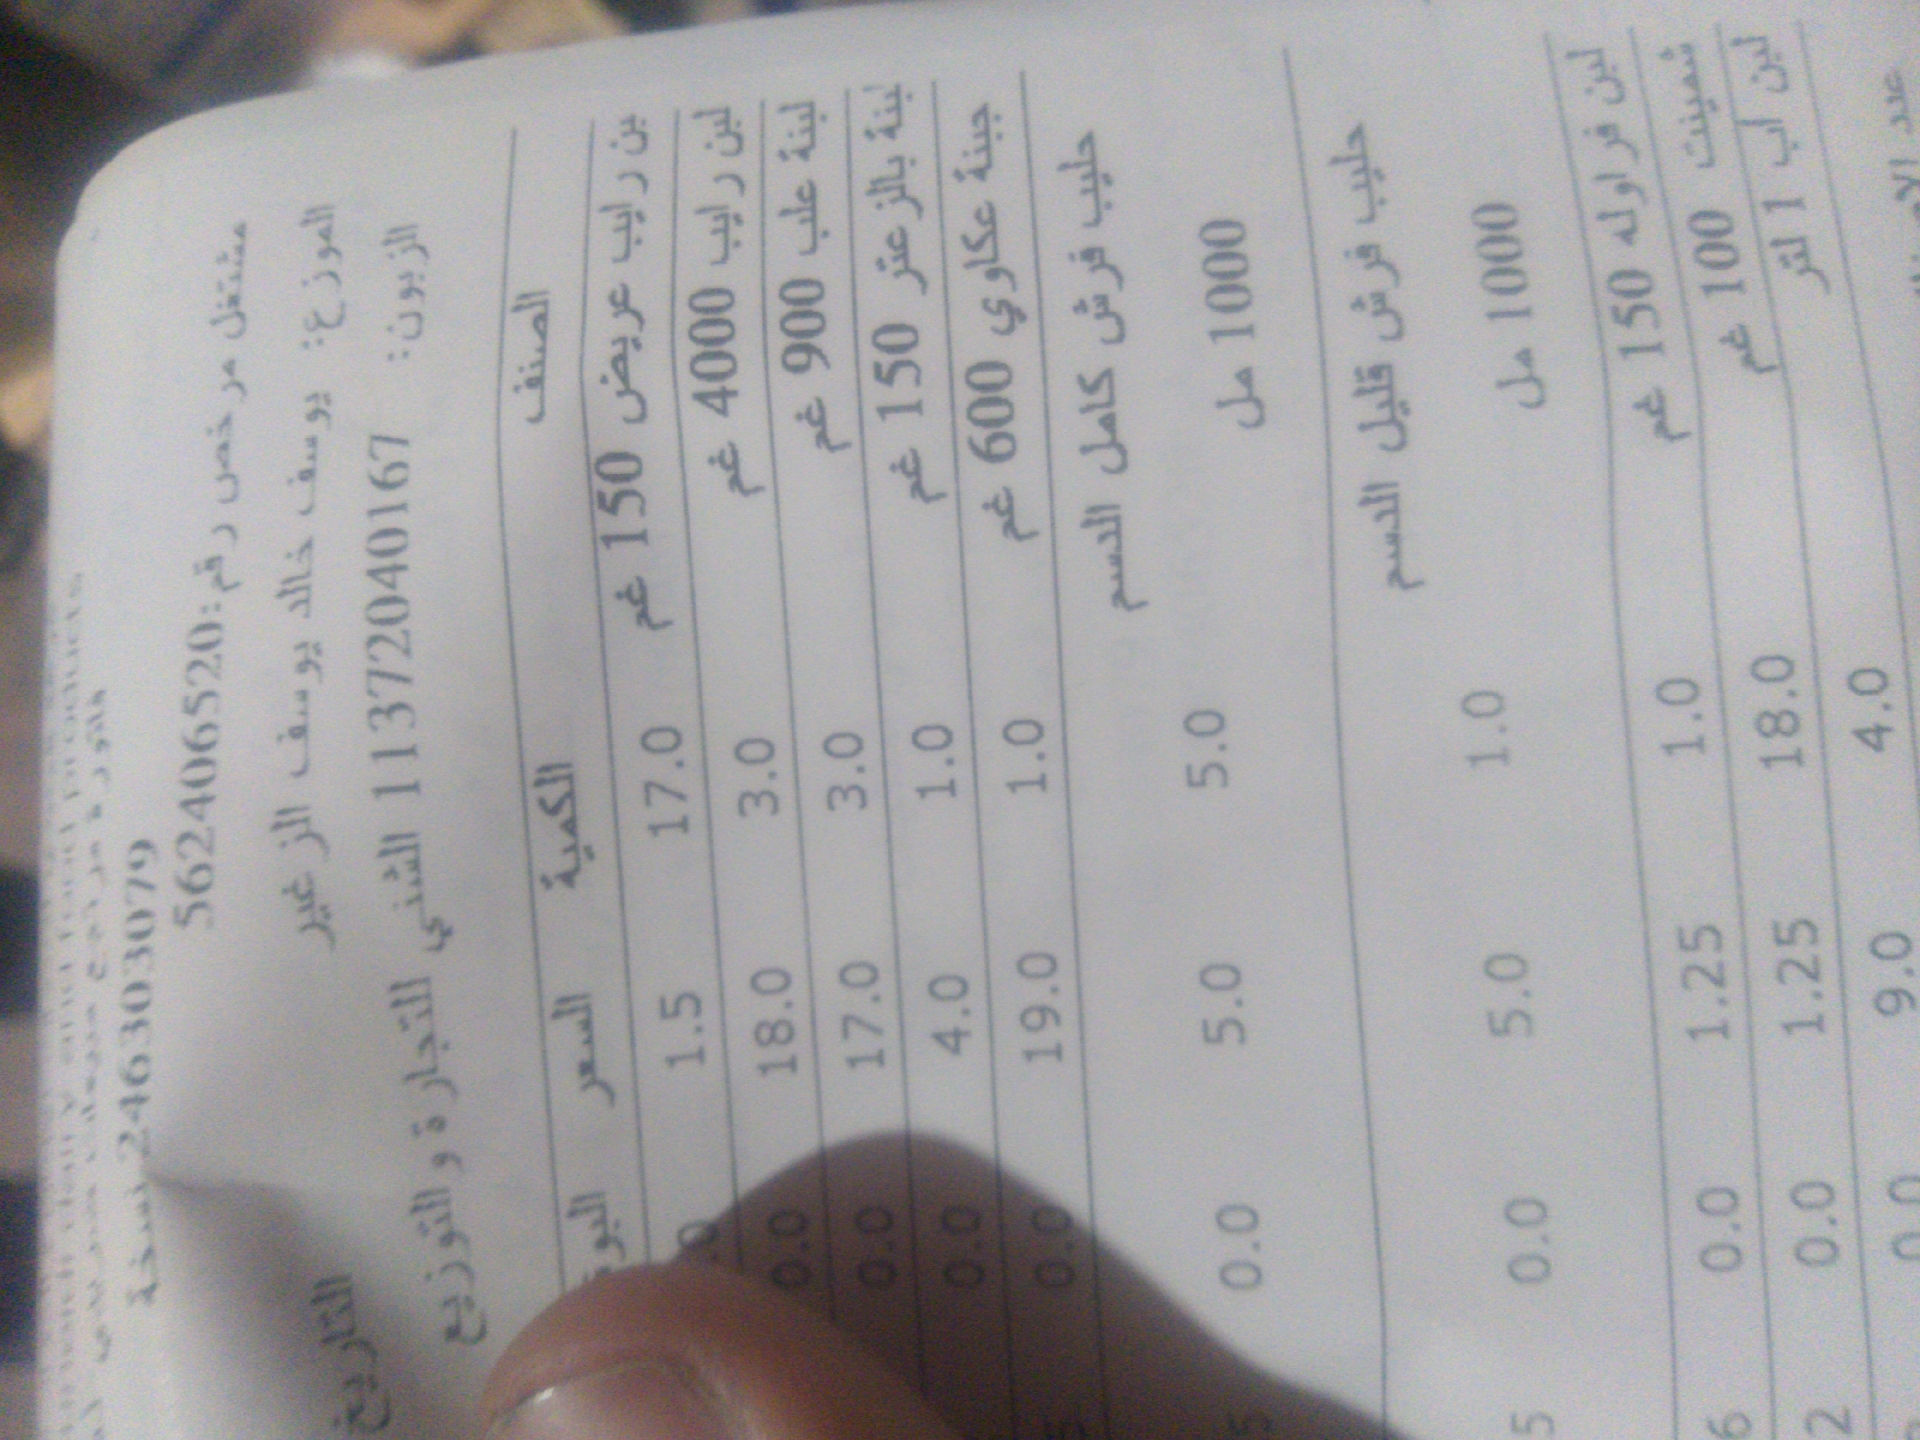 and Dairy and Food Products
فاتورة مرتجع مبيعات ضريبية
246303079 نسخة
مشتغل مرخص رقم:562406520
الموزع: يوسف خالد يوسف الزغير
التاريخ
الزبون: 1137204016‎7 الشني للتجارة والتوزيع
الصنف الكمية السعر
بن رايب عريض 150 غم 17.0 1.5
لبن رايب 4000 غم 3.0 18.0 0.0
لبنة علب 900 غم 3.0 17.0 0.0
لبنة بالزعتر 150 غم 1.0 4.0 0.0
جبنة عكاوي 600 غم 1.0 19.0 0.0
حليب فرش كامل الدسم
1000 مل 5.0 5.0 0.0 5
حليب فرش قليل الدسم
1000 مل 1.0 5.0 0.0 5
لبن فراوله 150 غم 1.0 1.25 0.0 6
شمينت 100 غم 18.0 1.25 0.0 2
لبن اب 1 لتر 4.0 9.0 0.0
عدد